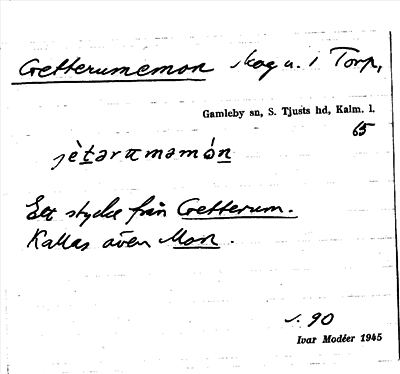 Getterumemon skog u. i Torp,
Gamleby sn, S. Tjusts hd, Kalm. l.
65
jètarπmamón
Ett stycke från Getterum.
Kallas även Mon.
s. 90
Ivar Modéer 1945